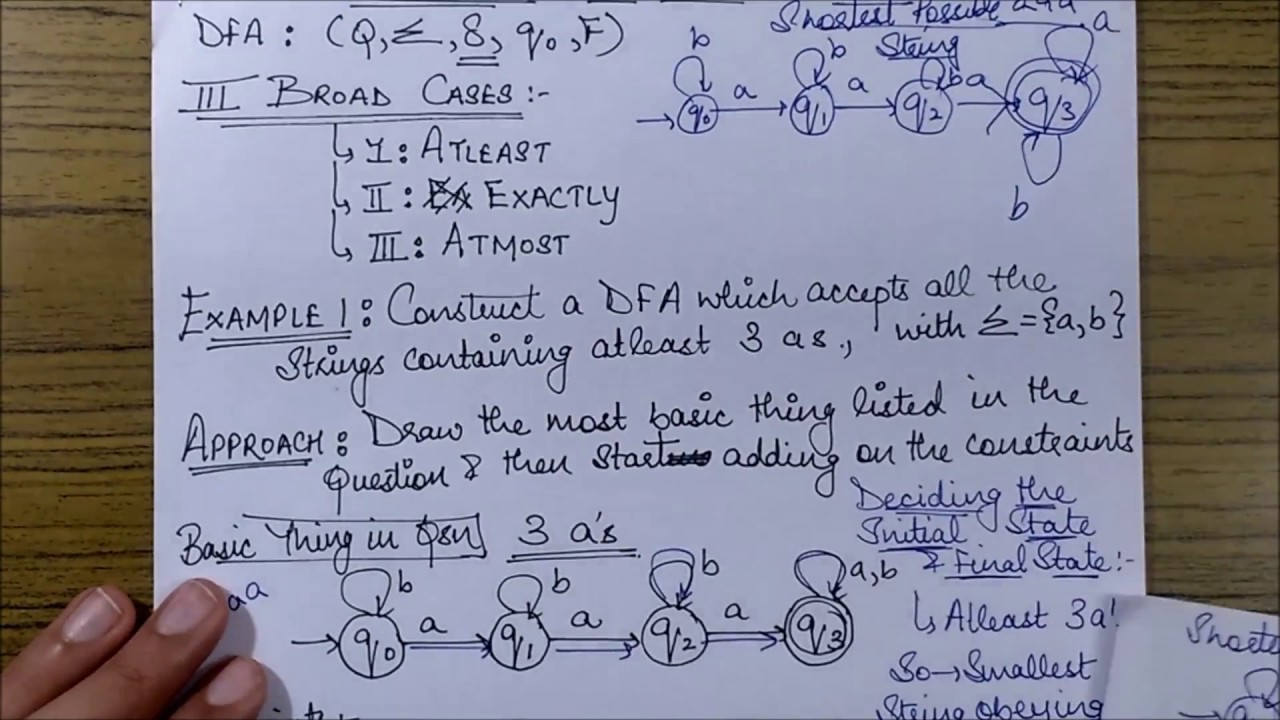 DFA : (Q, Σ, δ, q0, F)
III BROAD CASES :-
I : ATLEAST
II : EXACTLY
III : ATMOST
Shortest Possible aaa
String
b b b a a
a a
q0 q1 q2 q3
b
EXAMPLE 1 : Construct a DFA which accepts all the
Strings containing atleast 3 as, with Σ={a,b}
APPROACH : Draw the most basic thing listed in the
Question & then Start adding on the constraints
Basic Thing in Qsn 3 a's
aa
b b b a,b
a a a
q0 q1 q2 q3
Deciding the
Initial State
& Final State :-
Atleast 3a!
So → Smallest
String obeying